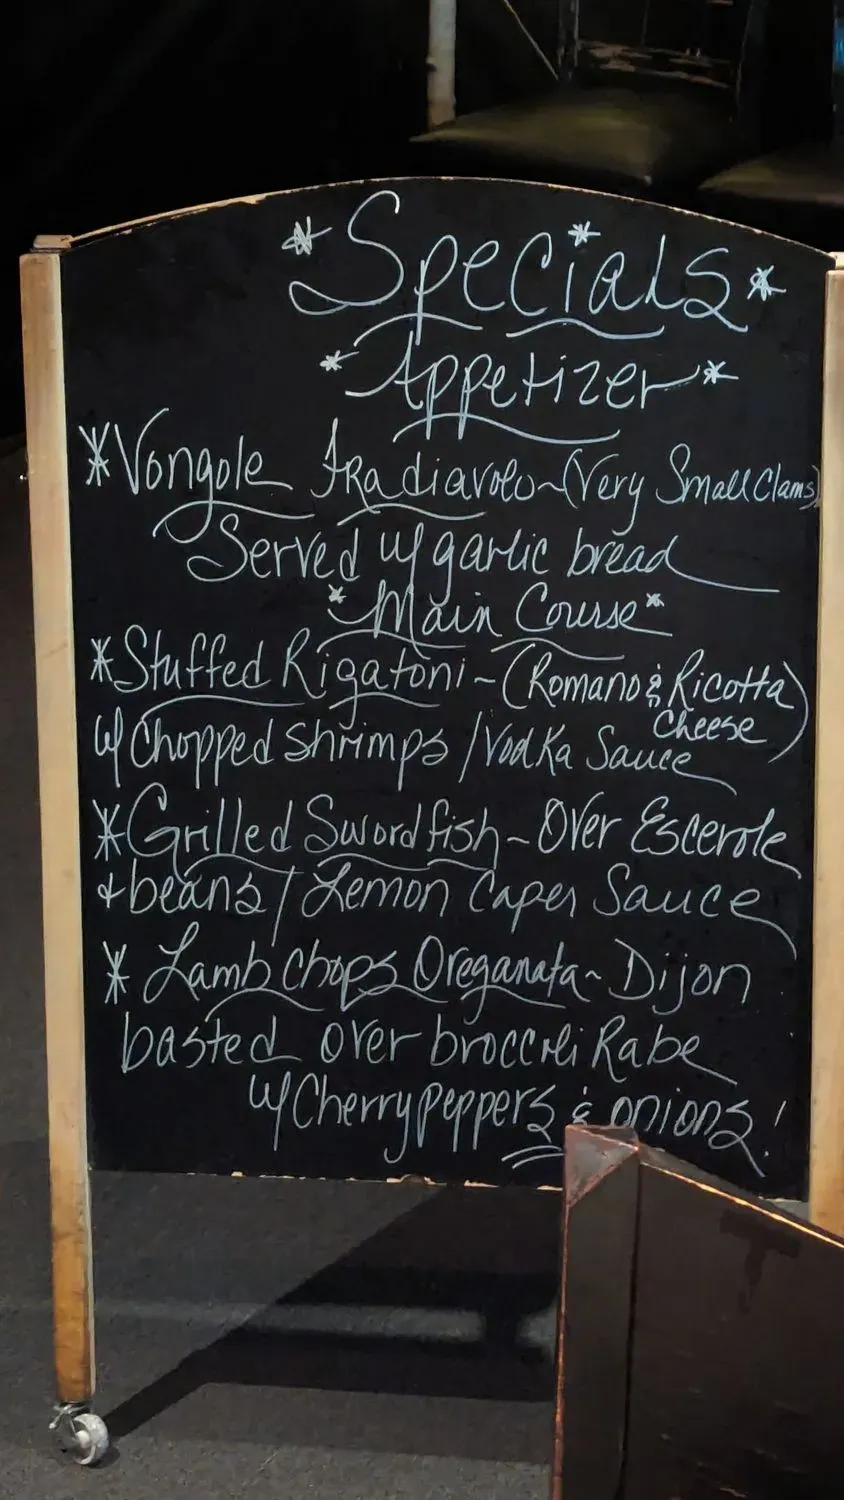 *Specials*
*Appetizer*
*Vongole Fradiavolo~(Very Small Clams)
Served w/ garlic bread
*Main Course*
*Stuffed Rigatoni~(Romano & Ricotta
Cheese)
w/ Chopped Shrimps /Vodka Sauce
*Grilled Swordfish~Over Escerole
+beans / Lemon Caper Sauce
*Lamb Chops Oreganata~Dijon
basted over broccoli Rabe
w/ Cherry peppers & onions!